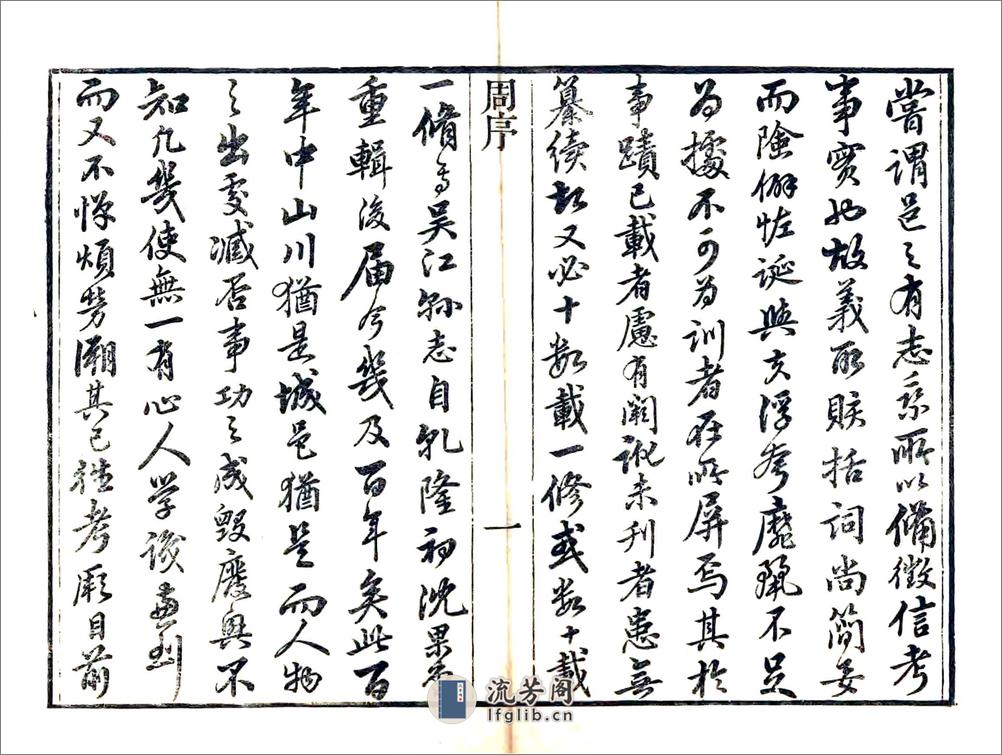 嘗謂邑之有志乘所以備徵信考
事實也故義取賅括詞尚簡要
而險僻怪誕與夫浮夸靡麗不足
為據不可為訓者在所屏焉其於
事蹟已載者慮有闕訛未刊者患無
纂續故又必十數載一修或數十載
周序 一
一脩焉吳江縣志自乾隆初沈果堂
重輯後届今幾及百年矣此百
年中山川猶是城邑猶是而人物
之出處臧否事功之成毀廢興不
知凡幾使無一有心人學識兼到
而又不憚煩勞溯其已往考厥目前
流芳阁
lfglib.cn